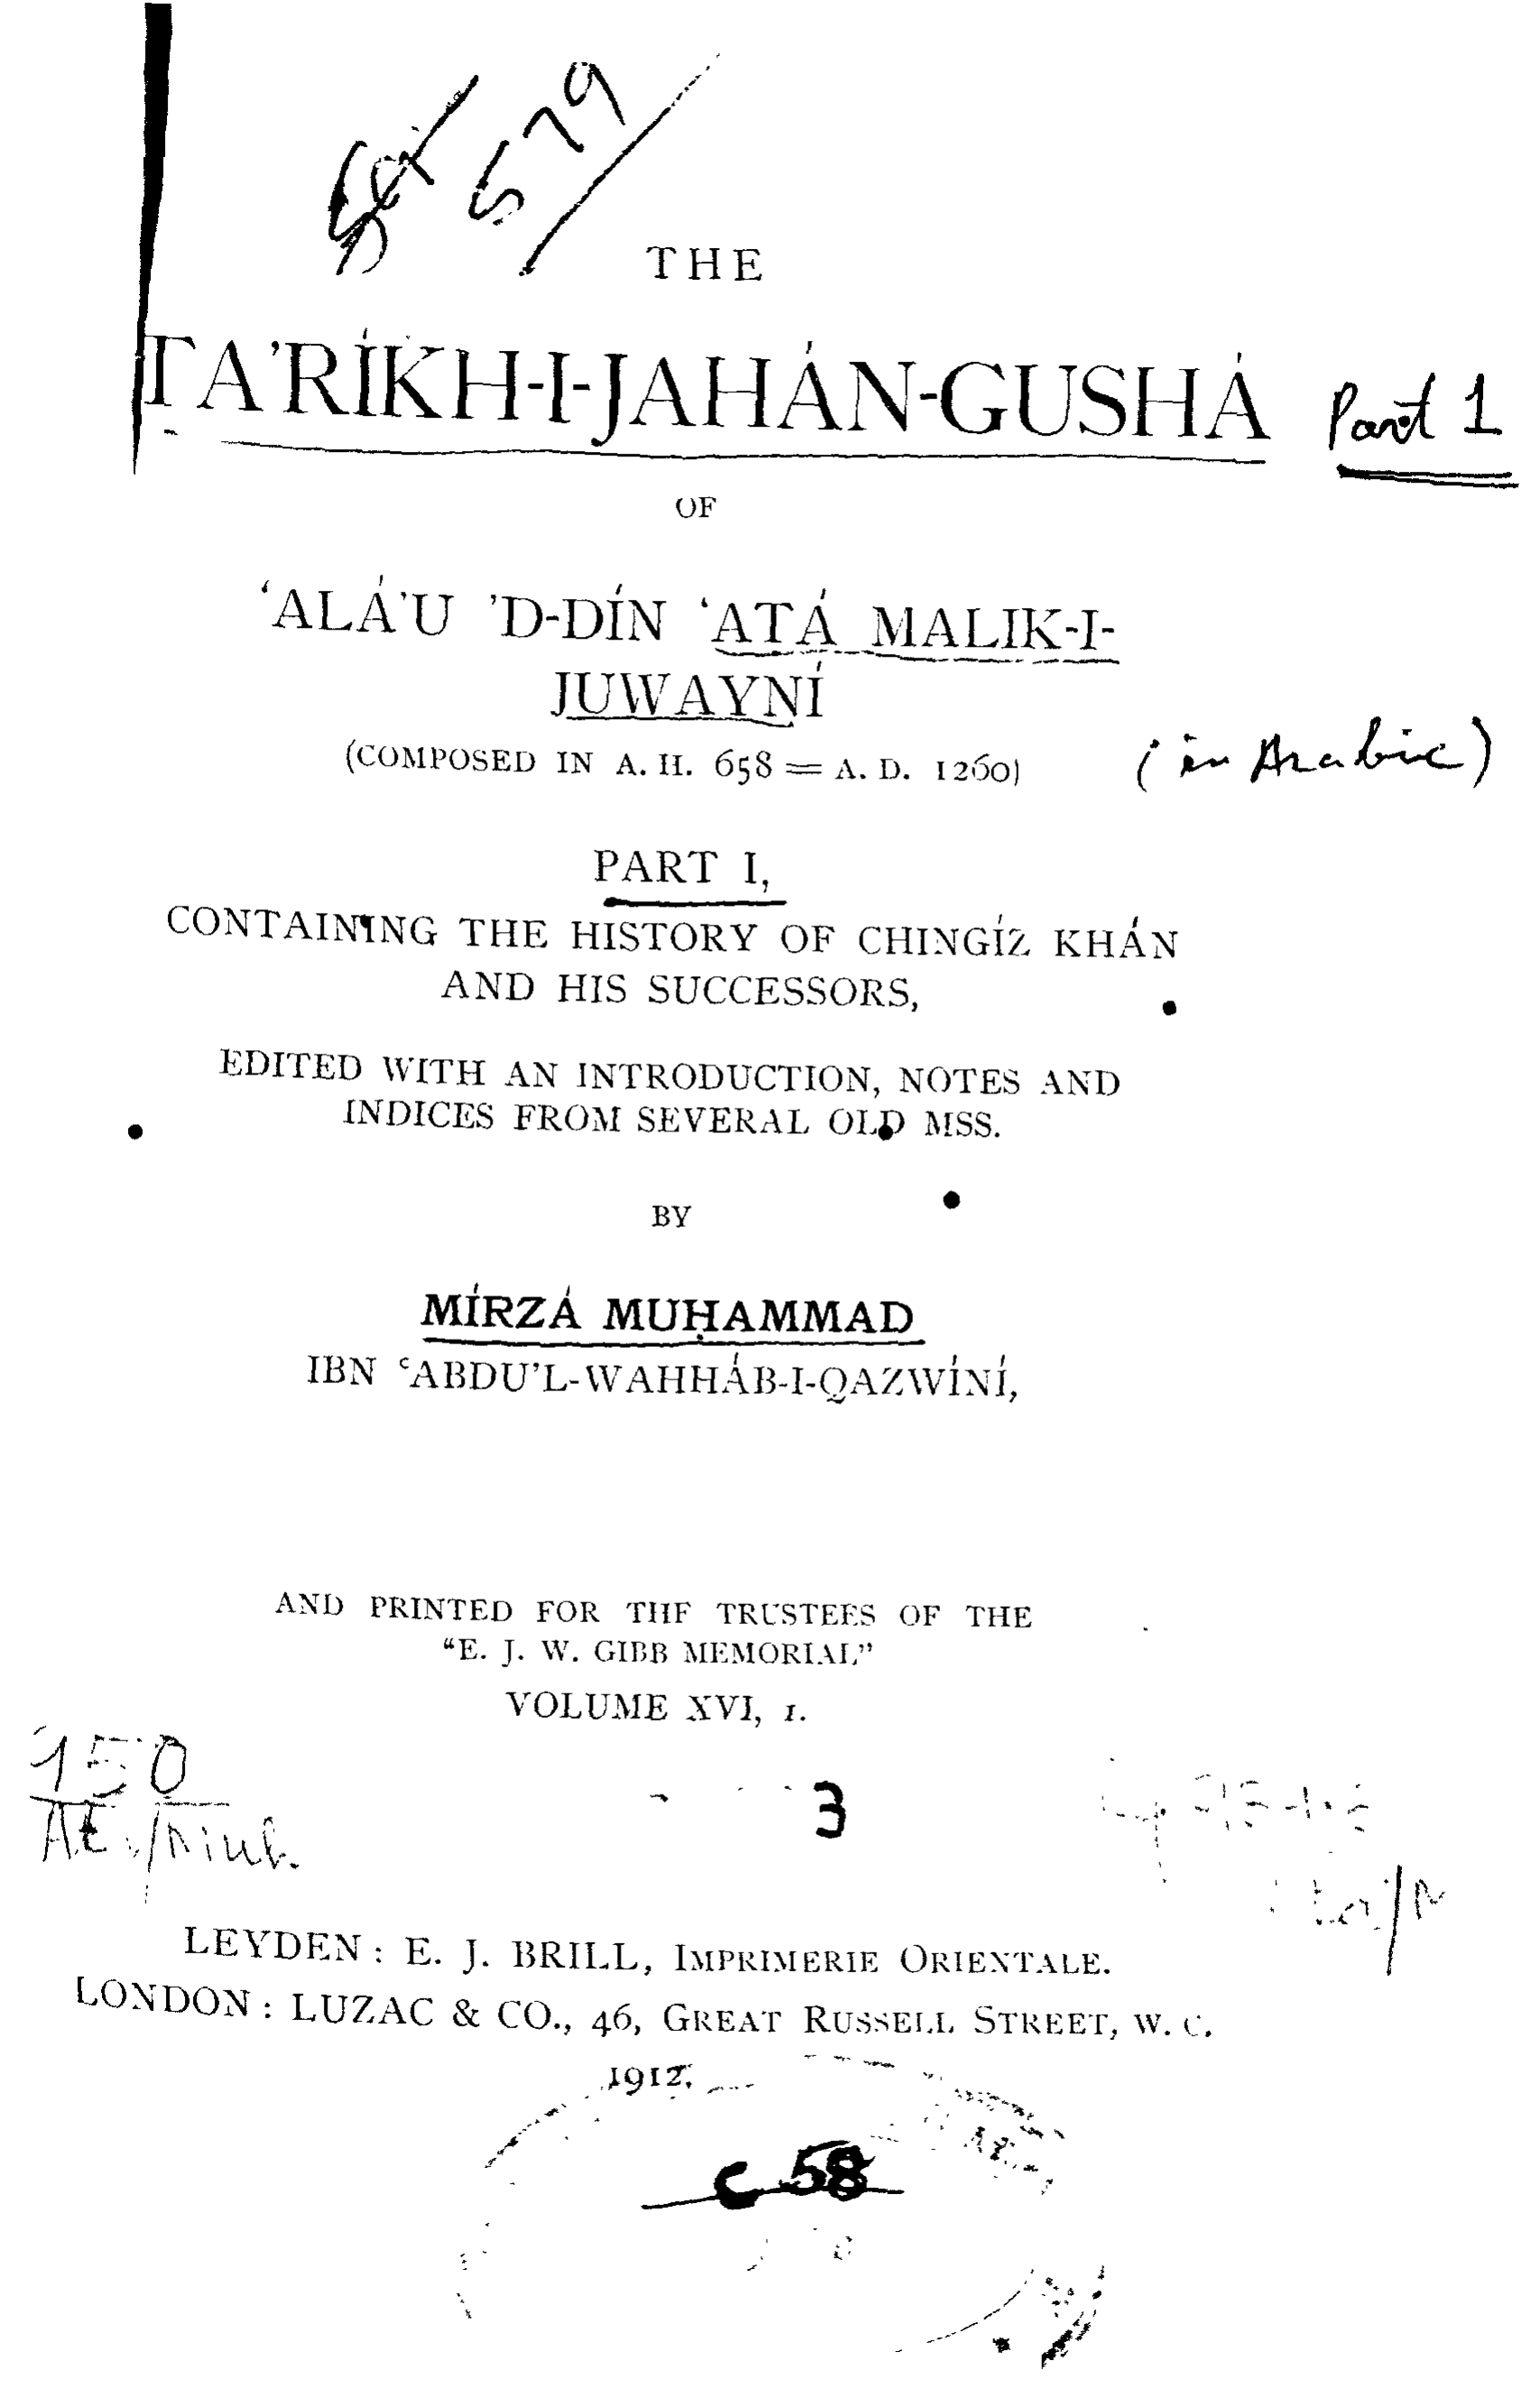 579
THE
TA’RÍKH-I-JAHÁN-GUSHÁ Part 1
OF
‘ALÁ’U ’D-DÍN ‘ATÁ MALIK-I-
JUWAYNÍ
(COMPOSED IN A. H. 658 = A. D. 1260) (in Arabic)
PART I,
CONTAINING THE HISTORY OF CHINGÍZ KHÁN
AND HIS SUCCESSORS,
EDITED WITH AN INTRODUCTION, NOTES AND
INDICES FROM SEVERAL OLD MSS.
BY
MÍRZÁ MUḤAMMAD
IBN ‘ABDU’L-WAHHÁB-I-QAZWÍNÍ,
AND PRINTED FOR THE TRUSTEES OF THE
“E. J. W. GIBB MEMORIAL”
VOLUME XVI, 1.
150
3
LEYDEN: E. J. BRILL, IMPRIMERIE ORIENTALE.
LONDON: LUZAC & CO., 46, GREAT RUSSELL STREET, W. C.
1912.
C 58